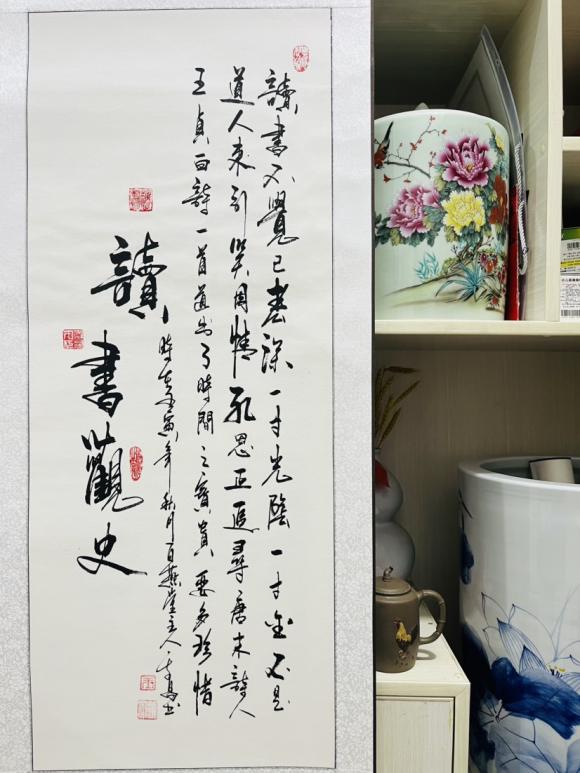 讀書不覺已春深一寸光陰一寸金不是
道人來引笑周情孔思正追尋唐末詩人
王貞百詩一首道出了時間之寶貴要多珍惜
時在壬寅年秋月百燕堂主人
讀書觀史